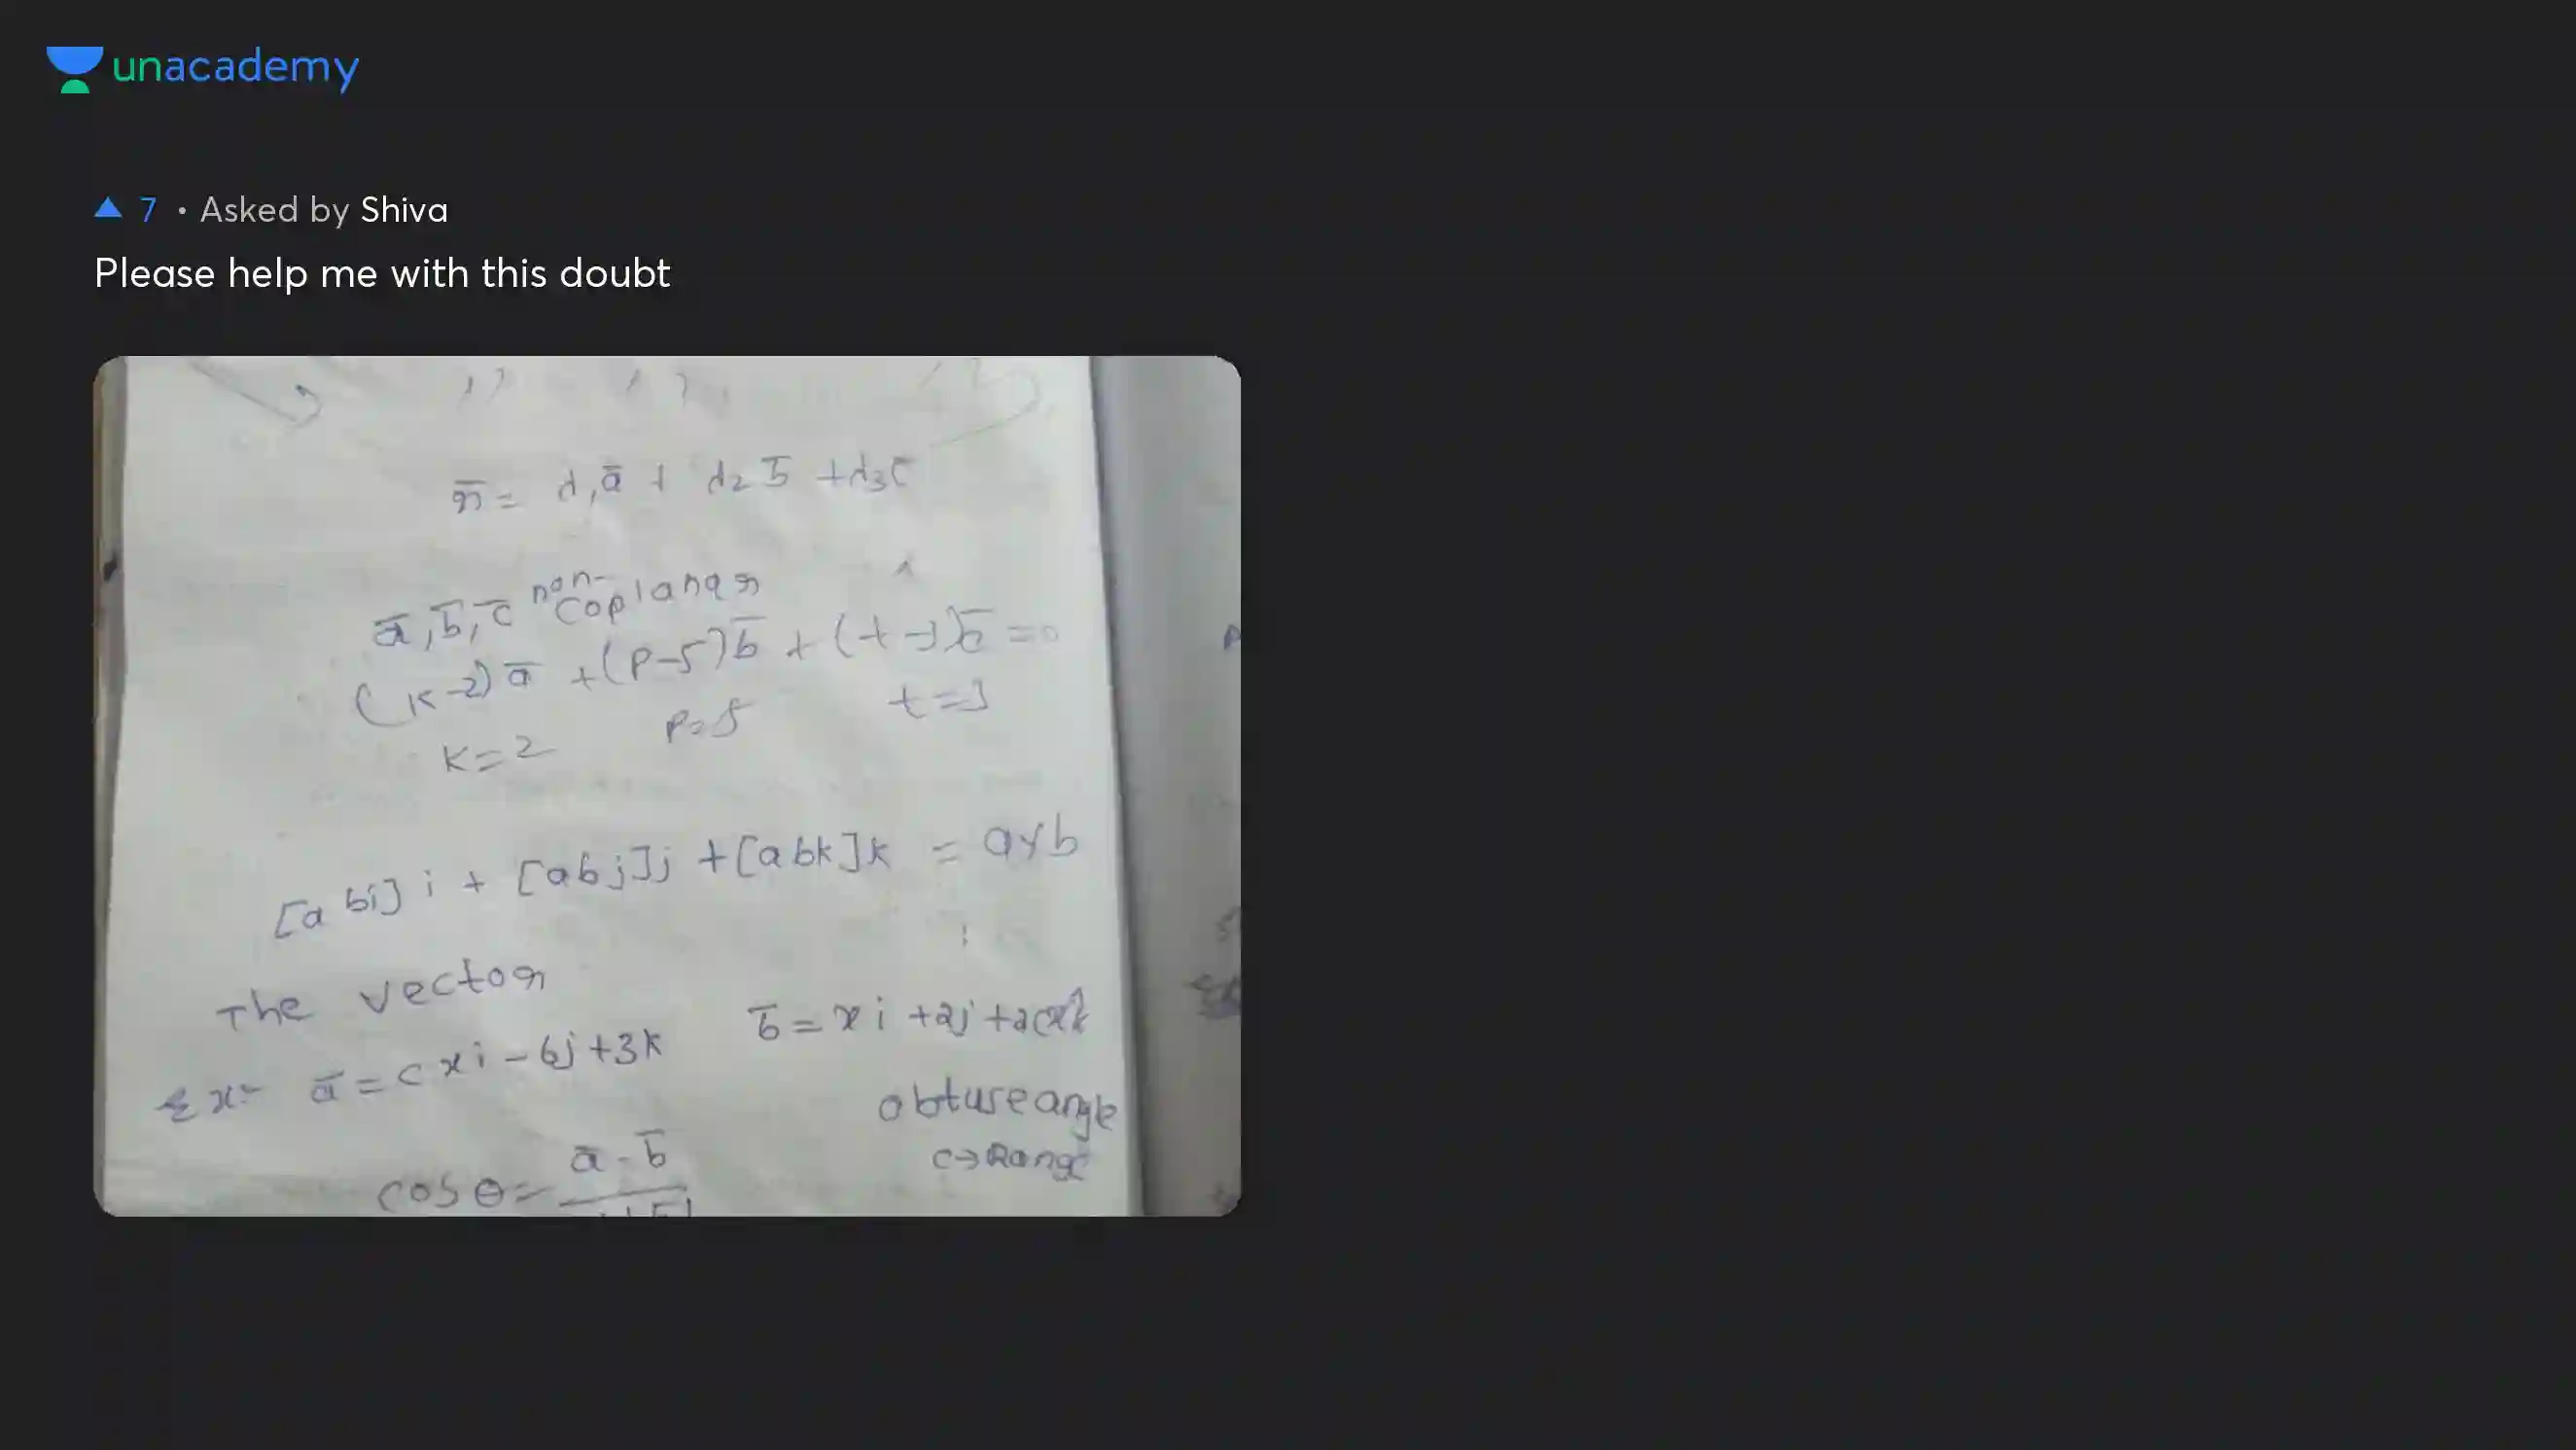 unacademy
7 • Asked by Shiva
Please help me with this doubt
r̄ = λ₁ā + λ₂b̄ + λ₃c̄
ā, b̄, c̄ non-coplanar
(K-2)ā + (P-5)b̄ + (t-1)c̄ = 0
K=2 P=5 t=1
[a bi] i + [abj]j + [abk]k = a×b
The vector
Ex:- ā = cxi - 6j + 3k b̄ = xi + 2j + 2cxk̂
obtuse angle
c→Range
cos θ = ā·b̄